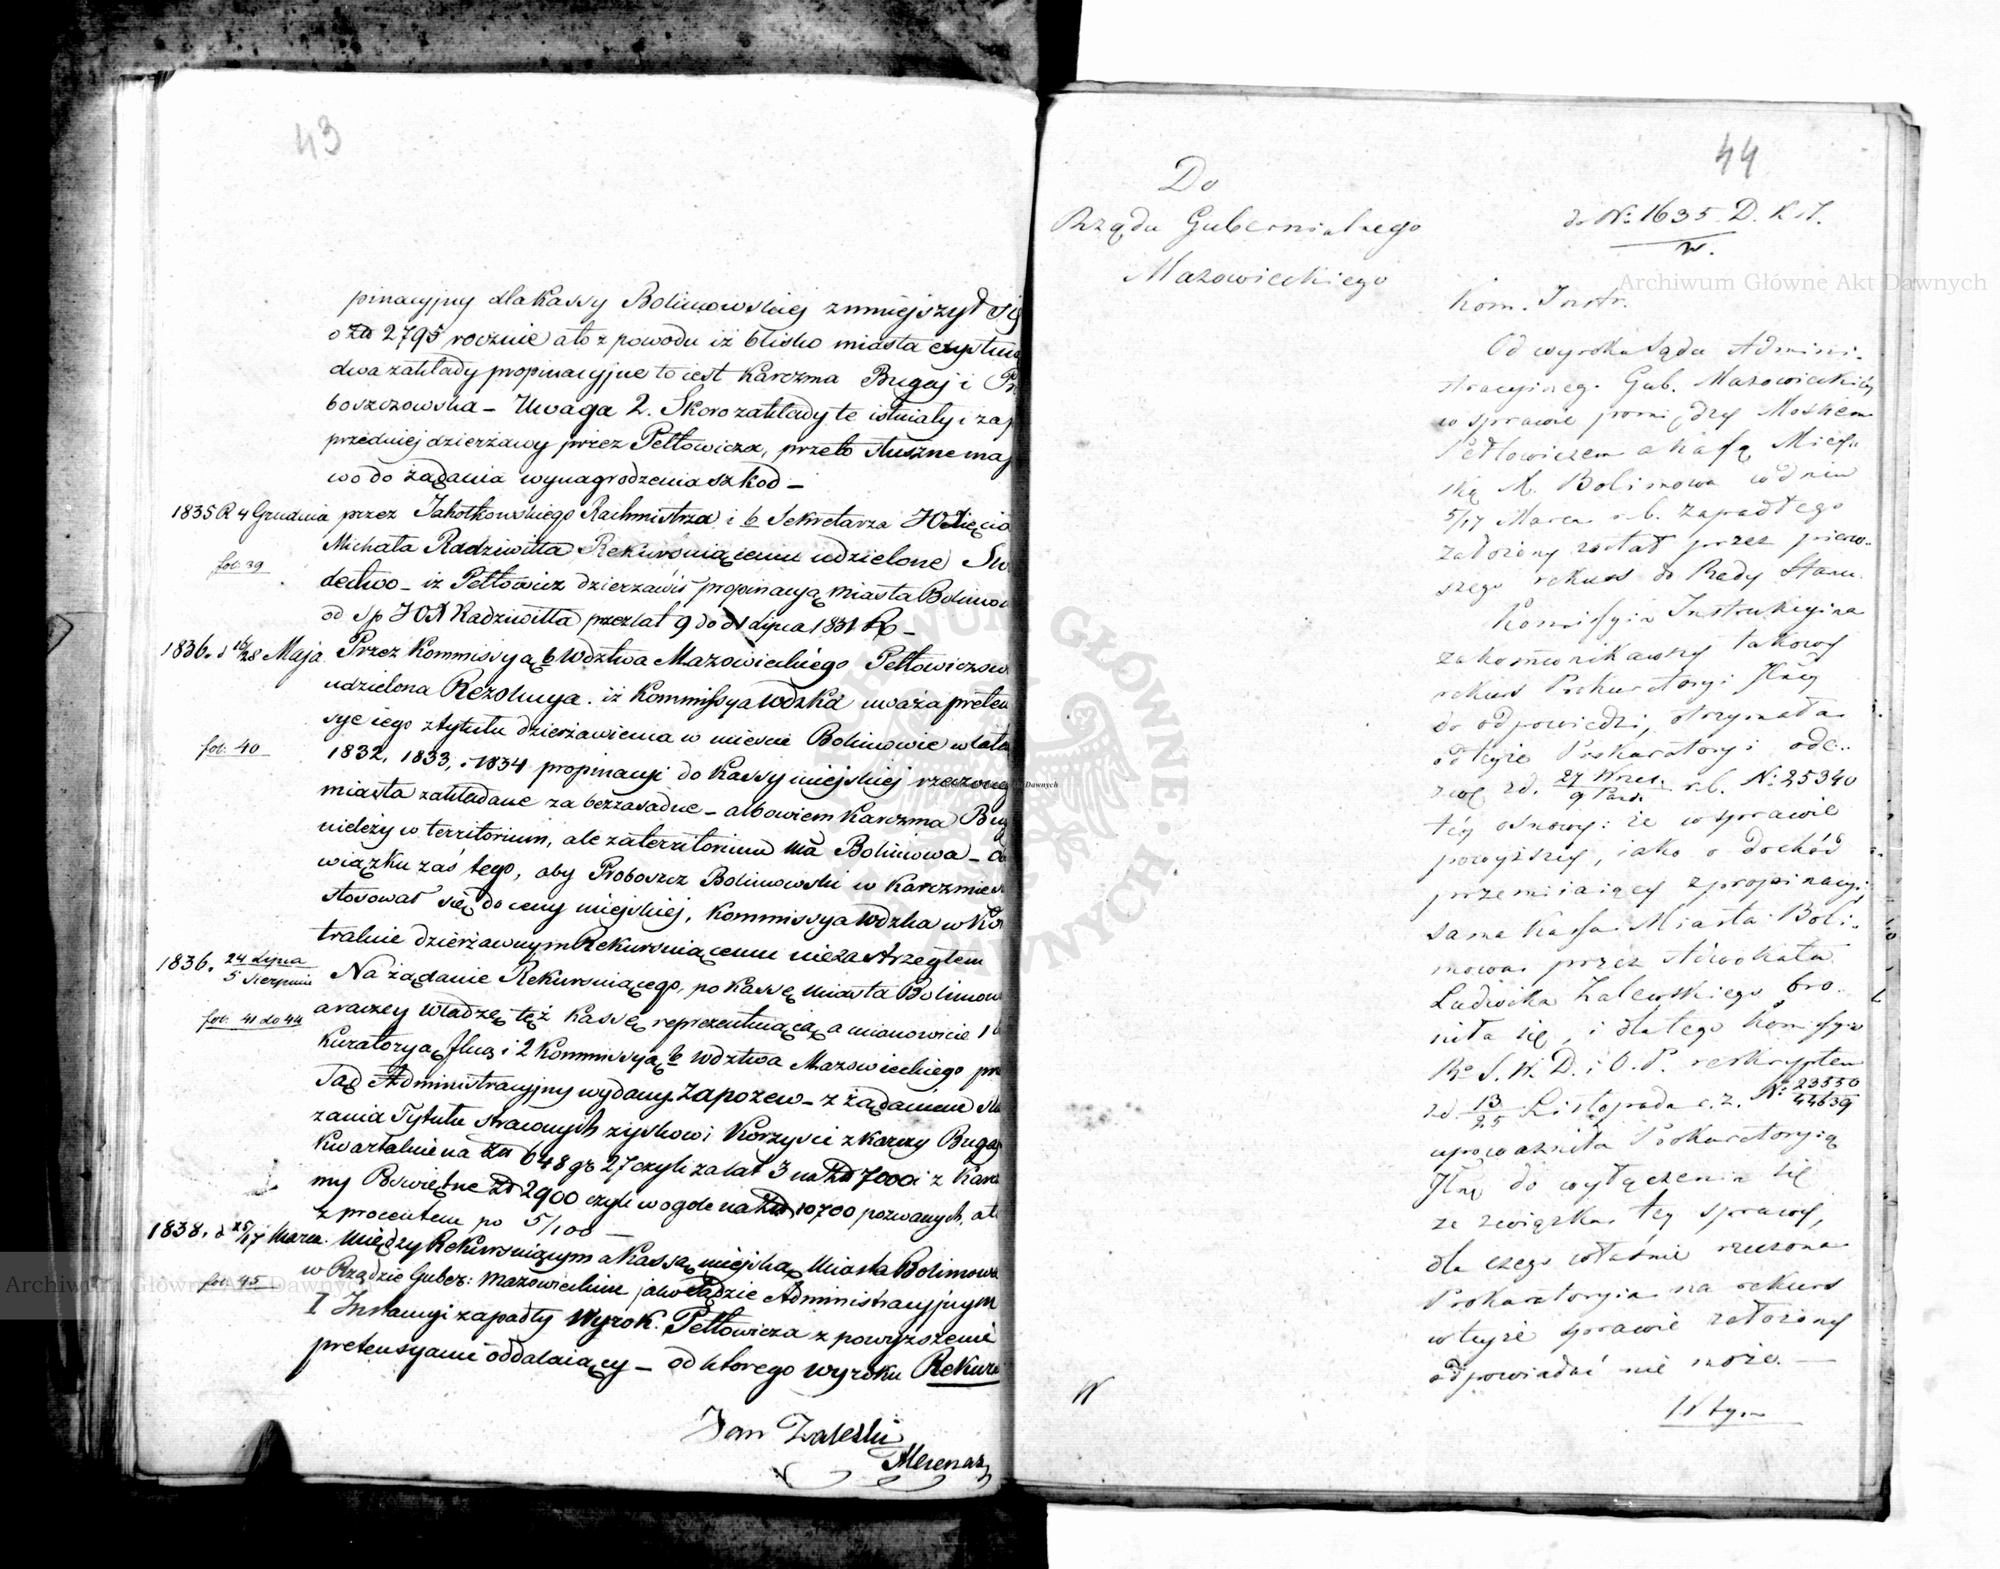 43
pinacyjny dla Kassy Bolimowskiej zmniejszył się
o zł 2795 rocznie a to z powodu iż blisko miasta
dwa zakłady propinacyjne to iest Karczma Bugaj i
boszczowska – Uwaga 2. Skoro zakłady te istniały i za
przedniej dzierżawy przez Pełtowicza, przeto słuszne ma
wo do żądania wynagrodzenia szkod –
1835 R 4 Grudnia przez Rachmistrza i b Sekretarza JO Xięcia
Michała Radziwiłła Rekurującemu udzielone
fol: 39
dectwo – iż Pełtowicz dzierżawił propinacyą miasta
od Sp JOX Radziwiłła przez lat 9 do d 1 Lipca 1831 R –
1836. d 16/28 Maja Przez Kommissyą b Wdztwa Mazowieckiego
udzielona Rezolucya. iż Kommissya Wdzka uważa
sye iego z tytułu dzierżawienia w mieście Bolimowie w lata
fol: 40
1832, 1833, i 1834 propinacyi do Kassy miejskiej
miasta zakładane za bezzasadne – albowiem Karczma
nieleży w territorium, ale za territorium Bolimowa –
wiązku zaś tego, aby Proboszcz Bolimowski w
stosował się do ceny miejskiej, Kommissya Wdzka w
trakcie dzierżawnym Rekurującemu niezastrzegłem
1836. 24 Lipca / 5 Sierpnia Na żądanie Rekurującego, po Kassę Miasta
fol: 41 do 44
a raczey Władzę też Kassę reprezentuiącą a mianowicie 1
Kuratoryą Jlną i 2 Kommissyą b Wdztwa Mazowieckiego
Sąd Administracyjny wydany Zapozew – z żądaniem
zania Tytułu straconych zysków i Korzyści z
Kwartalnie na zł 648 gr 27 czyli za lat 3 na zł 7000 i z
my zł 2900 czyli w ogole na zł 10700 pozwanych,
z procentem po 5/100 –
1838. d 5/17 Marca. między Rekurującym a Kassą miejską Miasta
fol: 45
w Rządzie Guber: Mazowieckim jako Sądzie Administracyjnym
I Instancyi zapadły Wyrok. Pełtowicza z
pretensyami oddalaiący – od ktorego wyroku
Jan Zaleski
Mecenas
44
Do
Rządu Gubernialnego
Mazowieckiego
do No 1635 D. K. I.
Kom. Instr.
Od wyroku Sądu Admini-
stracyjnego Gub. Mazowieckiey
w sprawie pomiędzy Moskiem
Pełtowiczem a Kassą Miey-
ską M. Bolimowa w dniu
5/17 Marca r. b. zapadłego
założony został przez pierw-
szego rekurs do Rady Stanu.
Komissyia Instrukcyjna
zakommunikawszy takowy
rekurs Prokuratoryi Jlney
do odpowiedzi, otrzymała
od teyże Prokuratoryi ode-
zwę z d. 27 Wrześ. / 9 Paźd. r. b. No 25340
tey osnowy: że w sprawie
powyższey, iako o dochód
przemiiaiący z propinacyi,
sama Kassa Miasta Boli-
mowa przez Adwokata
Ludwika Zalewskiego bro-
niła się, i dlatego Komissya
Ro S. W. D. i O. P. reskryptem
z d 13/25 Listopada No 23550 / 44639
upoważniła Prokuratoryią
Jlną do wyłączenia się
ze związku tey sprawy,
dla czego właśnie rzeczona
Prokuratoryia na rekurs
w teyże sprawie założony
odpowiadać nie może. –
Archiwum Główne Akt Dawnych
Archiwum Główne Akt Dawnych
ARCHIWUM GŁÓWNE AKT DAWNYCH